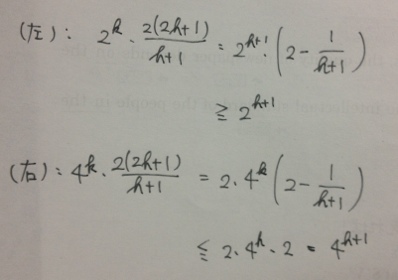 (左): 2^k · 2(2k+1)/(k+1) = 2^{k+1} · (2 - 1/(k+1))
≧ 2^{k+1}
(右): 4^k · 2(2k+1)/(k+1) = 2 · 4^k (2 - 1/(k+1))
≦ 2 · 4^k · 2 = 4^{k+1}